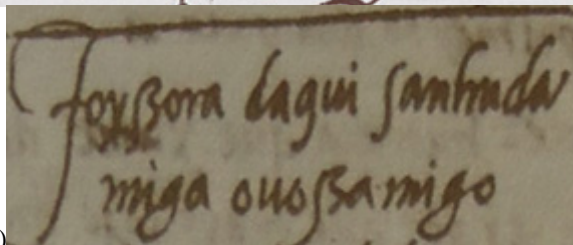 Foyssora daqui sanhuda
miga ouossamigo